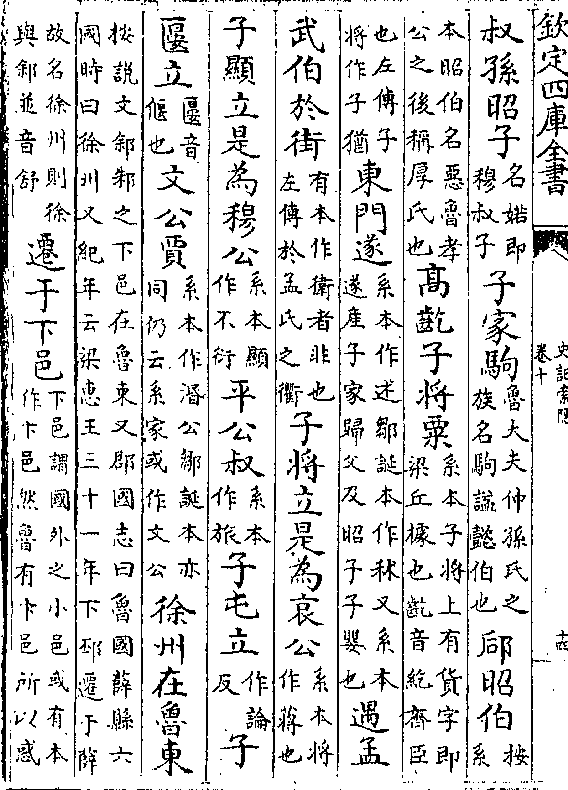 欽定四庫全書
史記索隱
卷十
十四
叔孫昭子名婼即穆叔子子家駒魯大夫仲孫氏之族名駒諡懿伯也郈昭伯按系
本昭伯名惡魯孝公之後稱厚氏也高齕子將粟系本子將上有貨字即梁丘據也齕音紇齊臣
也左傳子將作子猶東門遂系本作述鄒誕本作秫又系本遂産子家歸父及昭子子嬰也遇孟
武伯於街有本作衛者非也左傳於孟氏之衢子將立是為哀公系本將作蔣也
子顯立是為穆公系本顯作不衍平公叔系本作旅子屯立作論反子
匽立匽音偃也文公賈系本作湣公鄒誕本亦同仍云系家或作文公徐州在魯東
按說文䣄邾之下邑在魯東又郡國志曰魯國薛縣六國時曰徐州又紀年云梁惠王三十一年下邳遷于薛
故名徐州則徐與䣄並音舒遷于下邑下邑謂國外之小邑或有本作卞邑然魯有卞邑所以惑